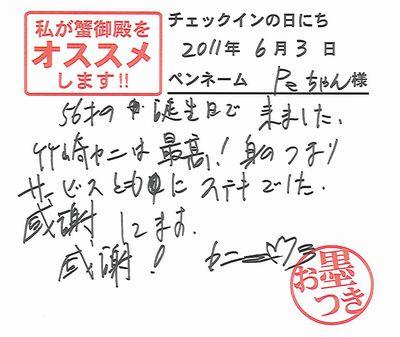 私が蟹御殿を
オススメ
します!!
チェックインの日にち
2011年 6月 3日
ペンネーム Peちゃん様
56才の 誕生日で 来ました.
竹崎カニは最高! 身のつまり
サービスともにステキでした.
感謝してます.
感謝! カニ
お墨
つき